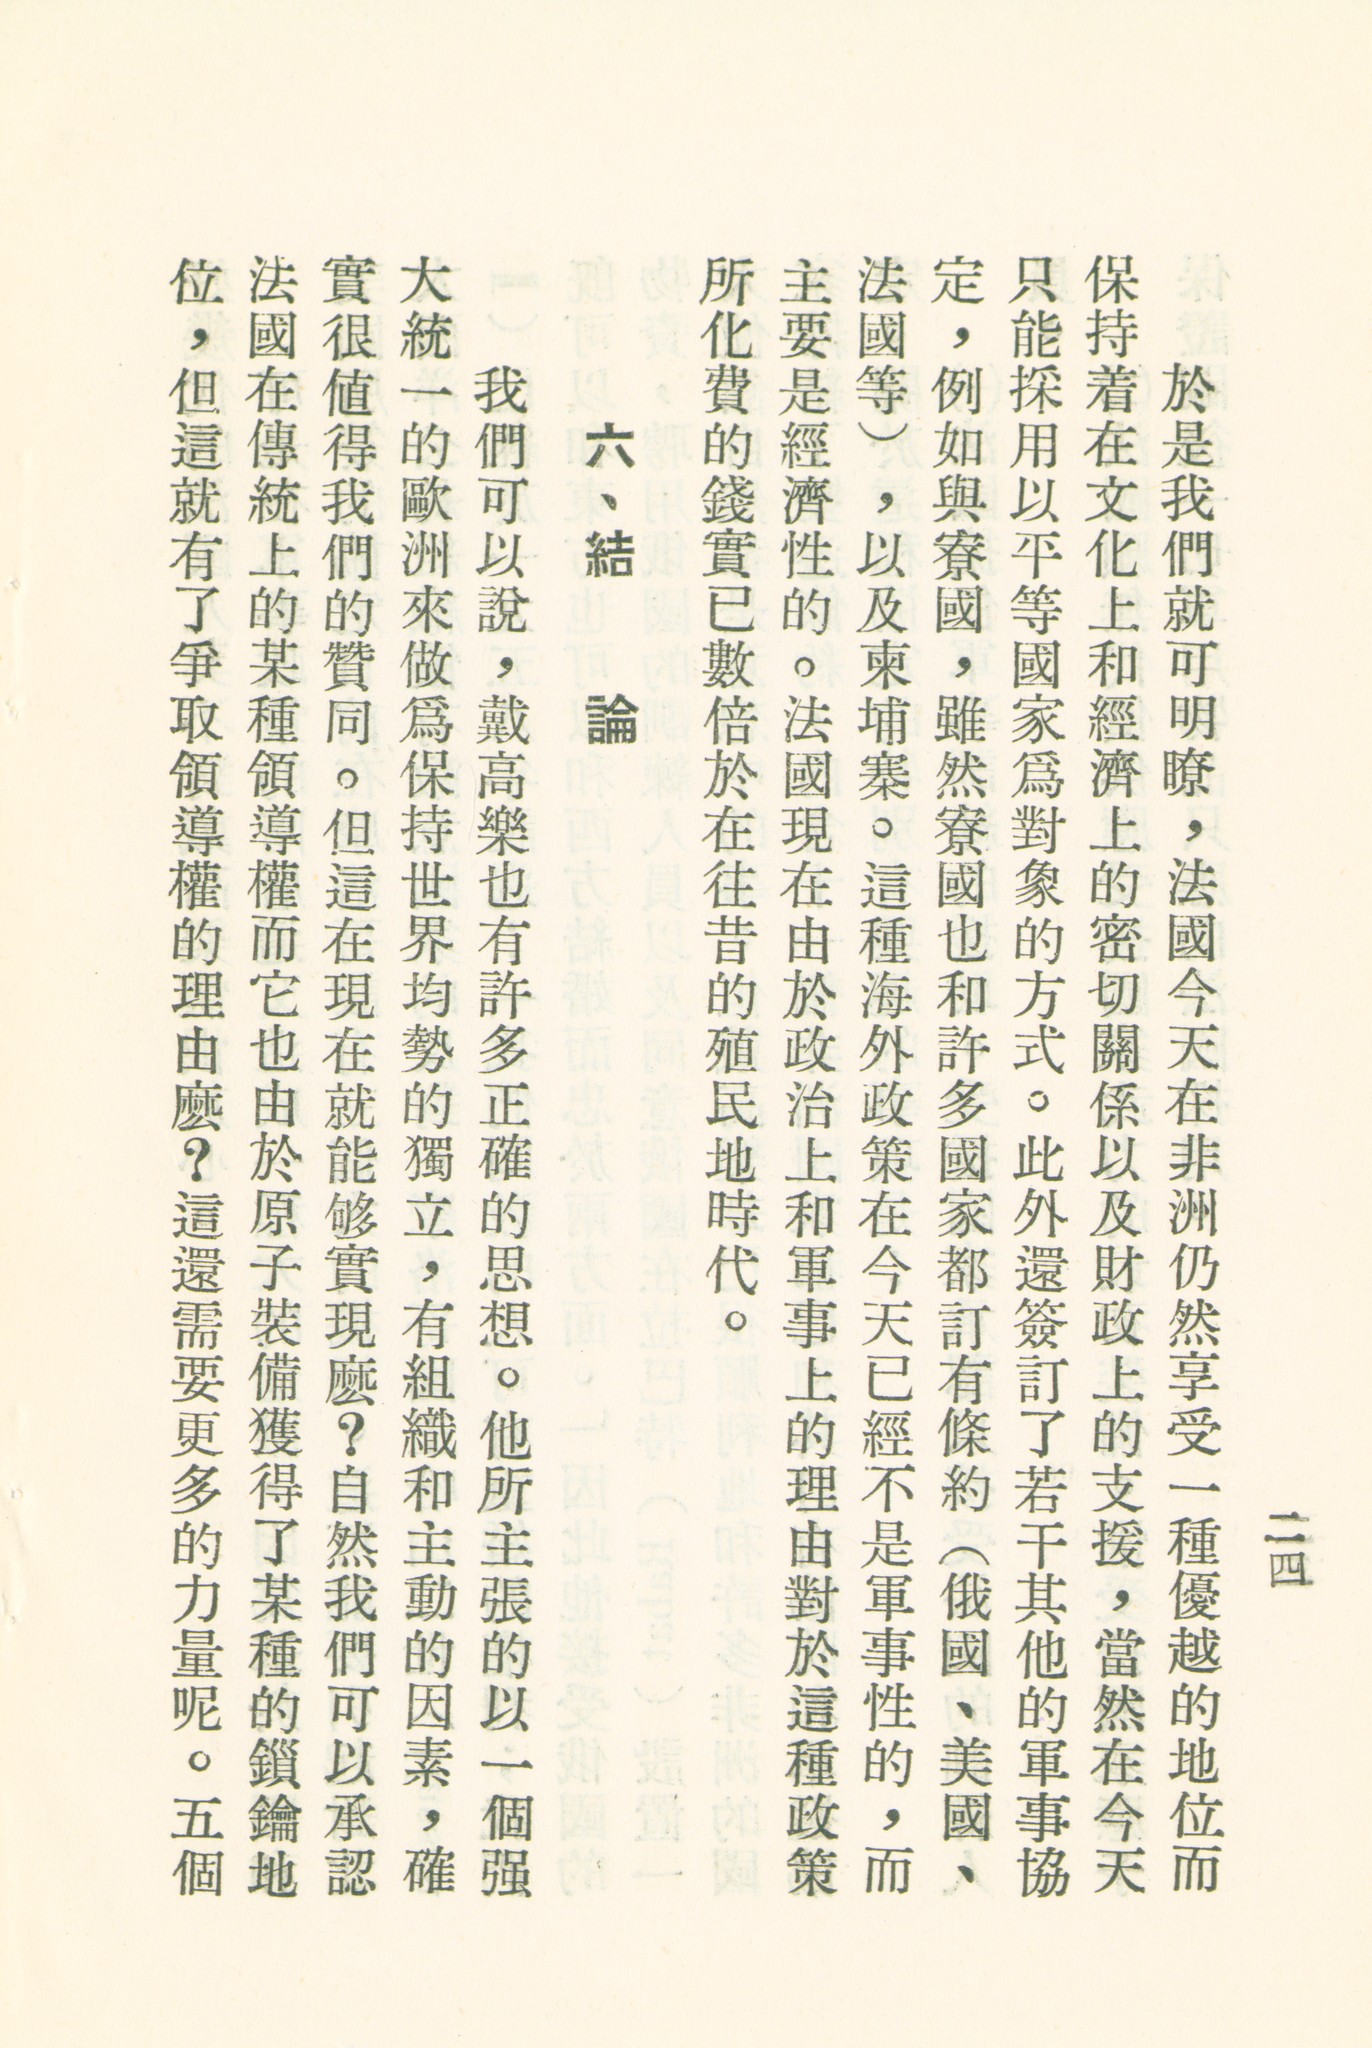 二四
於是我們就可明瞭，法國今天在非洲仍然享受一種優越的地位而
保持着在文化上和經濟上的密切關係以及財政上的支援，當然在今天
只能採用以平等國家爲對象的方式。此外還簽訂了若干其他的軍事協
定，例如與寮國，雖然寮國也和許多國家都訂有條約（俄國、美國、
法國等），以及柬埔寨。這種海外政策在今天已經不是軍事性的，而
主要是經濟性的。法國現在由於政治上和軍事上的理由對於這種政策
所化費的錢實已數倍於在往昔的殖民地時代。
六、結　論
我們可以說，戴高樂也有許多正確的思想。他所主張的以一個强
大統一的歐洲來做爲保持世界均勢的獨立，有組織和主動的因素，確
實很値得我們的贊同。但這在現在就能够實現麽？自然我們可以承認
法國在傳統上的某種領導權而它也由於原子裝備獲得了某種的鎖鑰地
位，但這就有了爭取領導權的理由麽？這還需要更多的力量呢。五個